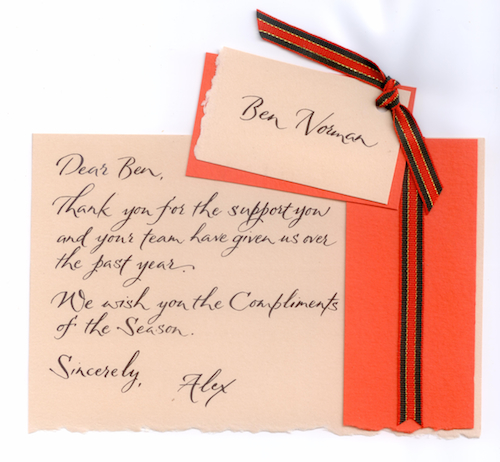 Ben Norman
Dear Ben,
Thank you for the support you
and your team have given us over
the past year.
We wish you the Compliments
of the Season.
Sincerely,
Alex